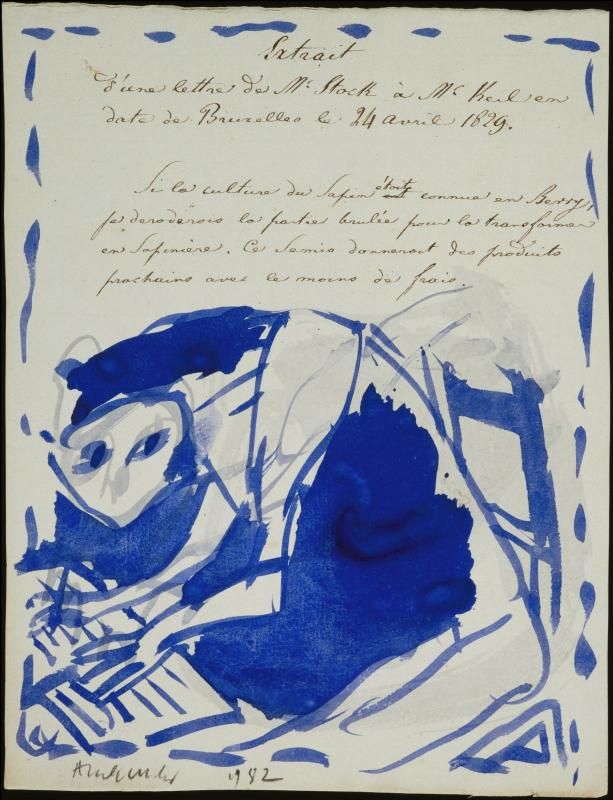 Extrait
d'une lettre de Mr Stock à Mr Keil en
date de Bruxelles le 24 avril 1829.
Si la culture du Sapin étoit connue en Berry,
je deroderois la partie brulée pour la transformer
en Sapinière. Ce Semis donneroit des produits
prochains avec le moins de frais.
1982